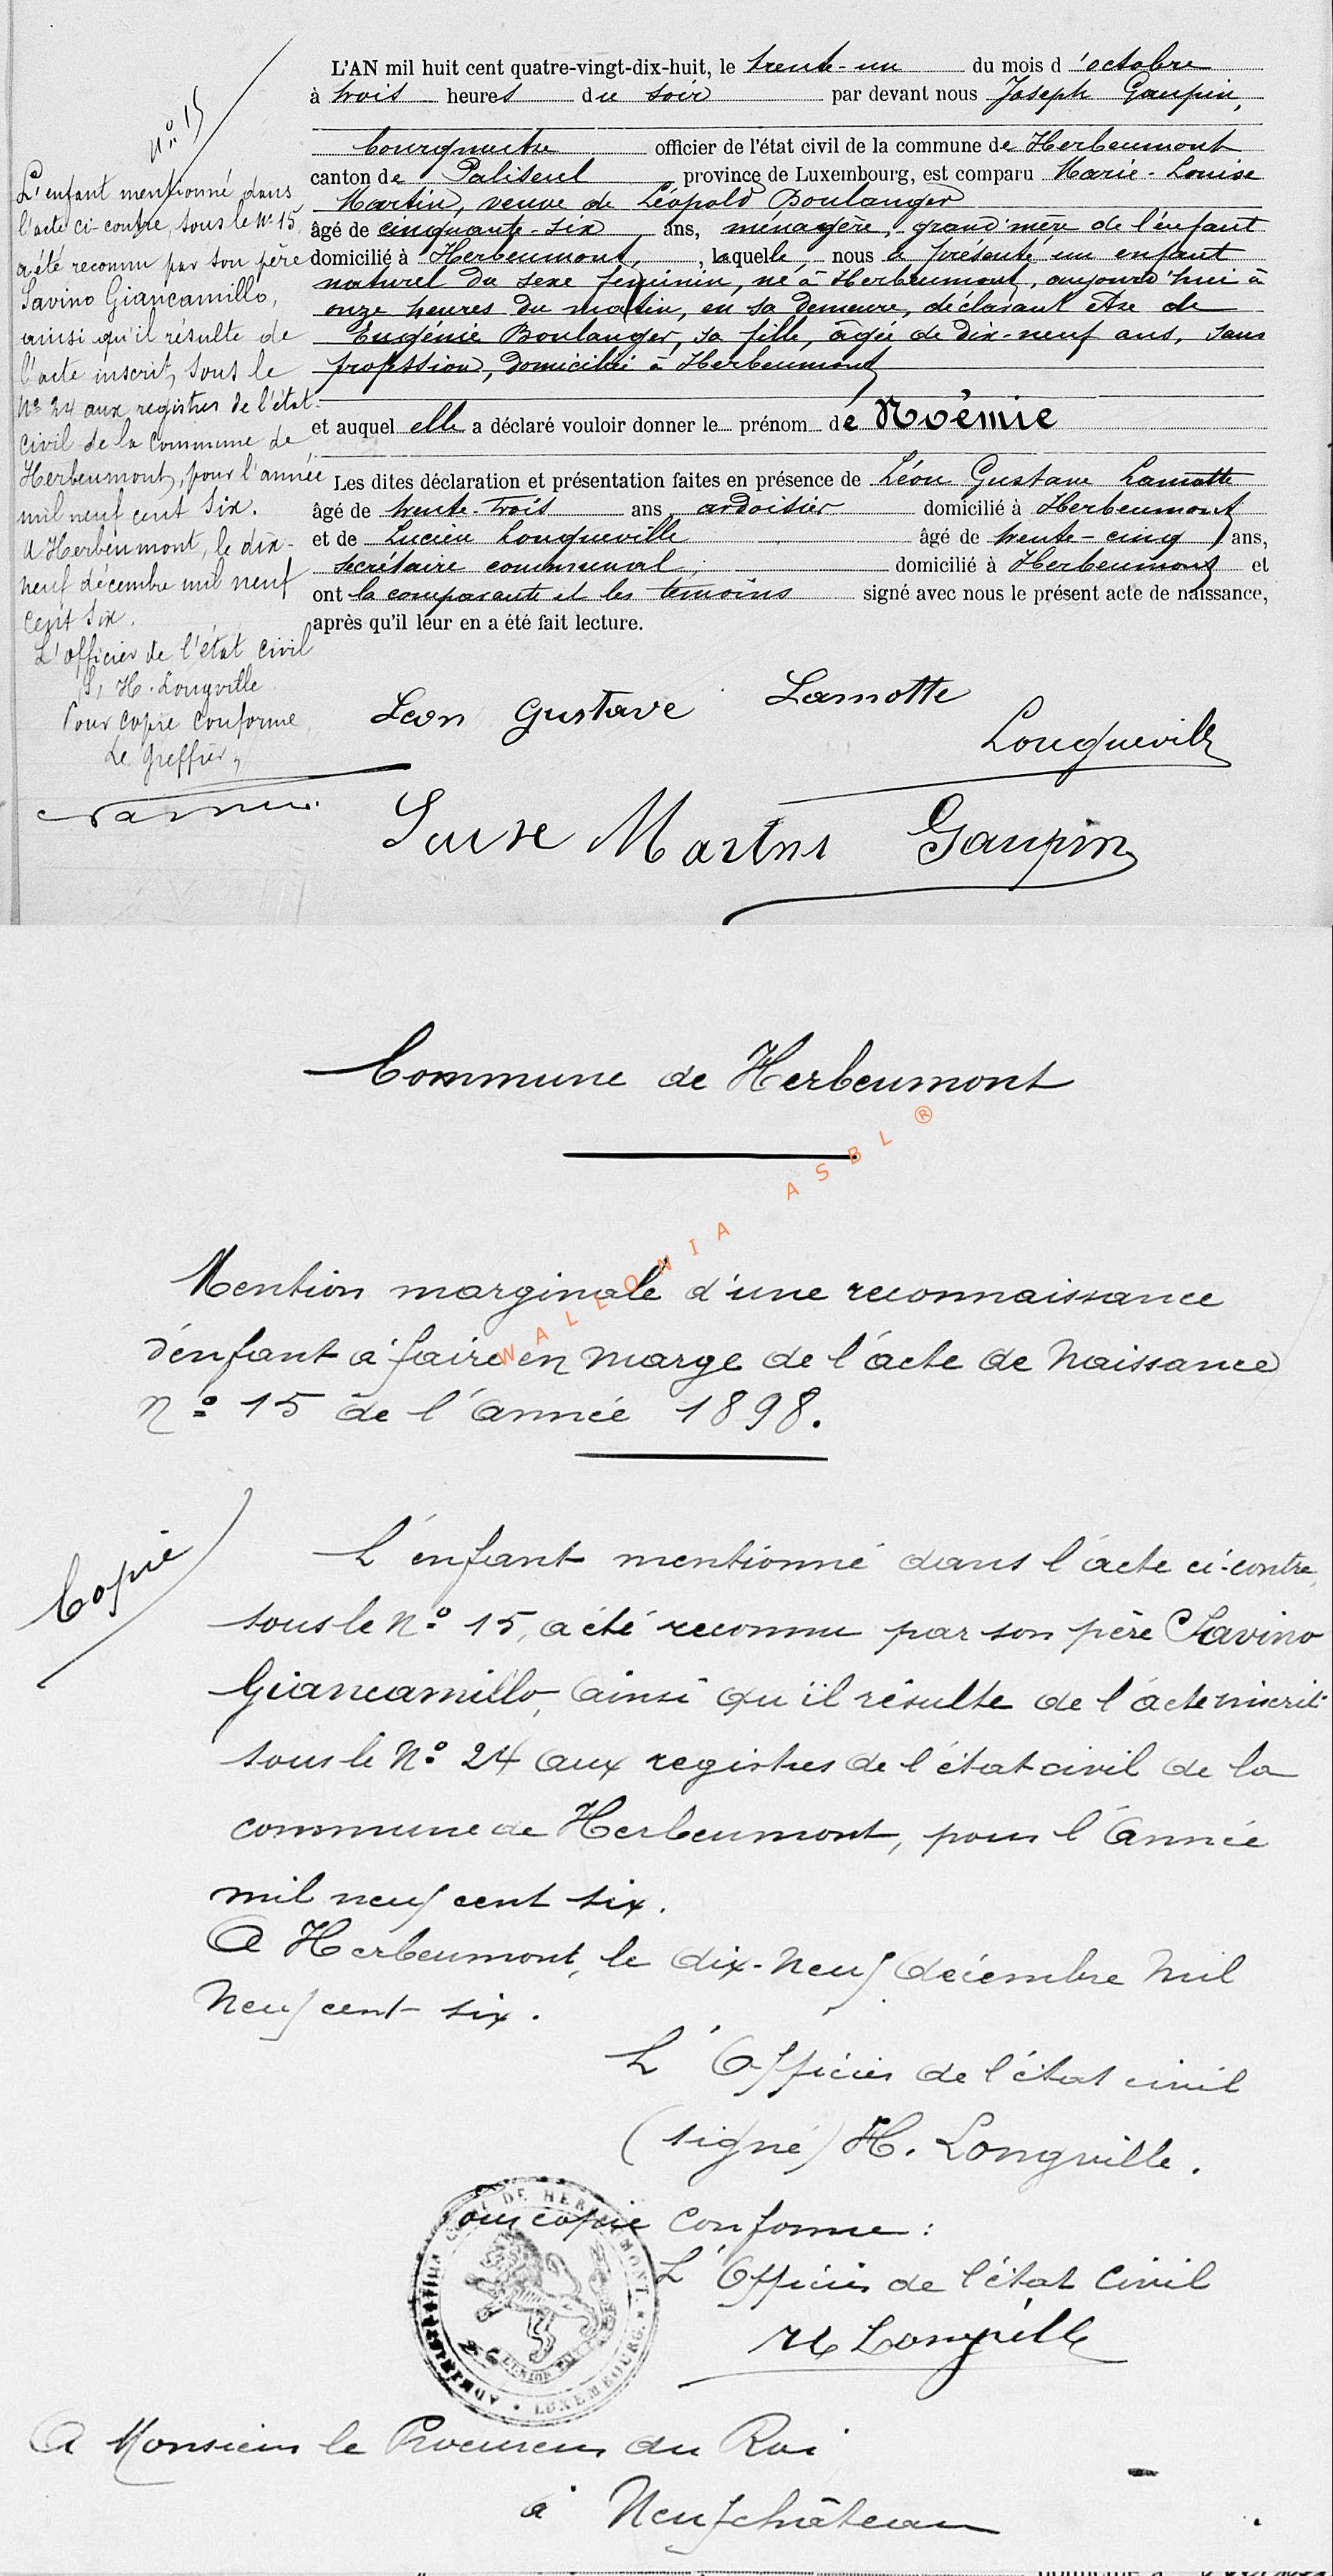 N° 15
L'enfant mentionné dans
l'acte ci-contre, sous le N° 15,
a été reconnu par son père
Savino Giancamillo,
ainsi qu'il résulte de
l'acte inscrit, sous le
N° 24 aux registres de l'état-
civil de la Commune de
Herbeumont, pour l'année
mil neuf cent six.
A Herbeumont, le dix-
neuf décembre mil neuf
cent six.
L'officier de l'état civil
S, H. Longville
Pour copie conforme,
Le Greffier,
L'AN mil huit cent quatre-vingt-dix-huit, le trente-un du mois d'octobre
à trois heures du soir par devant nous Joseph Gaupin,
bourgmestre officier de l'état civil de la commune de Herbeumont
canton de Paliseul, province de Luxembourg, est comparu Marie-Louise
Martin, veuve de Léopold Boulanger
âgé de cinquante-six ans, ménagère, grand'mère de l'enfant
domicilié à Herbeumont, laquelle nous a présenté un enfant
naturel du sexe feminin, né à Herbeumont, aujourd'hui à
onze heures du matin, en sa demeure, déclarant être de
Eugénie Boulanger, sa fille, âgée de dix-neuf ans, sans
profession, domiciliée à Herbeumont
et auquel elle a déclaré vouloir donner le prénom de Noémie
Les dites déclaration et présentation faites en présence de Léon Gustave Lamotte
âgé de trente-trois ans, ardoisier domicilié à Herbeumont
et de Lucien Longueville âgé de trente-cinq ans,
secrétaire communal, domicilié à Herbeumont et
ont la comparante et les témoins signé avec nous le présent acte de naissance,
après qu'il leur en a été fait lecture.
Leon Gustave Lamotte
Longueville
Louise Martin Gaupin
Commune de Herbeumont
WALLONIA ASBL ®
Mention marginale d'une reconnaissance
d'enfant à faire en marge de l'acte de Naissance
N° 15 de l'année 1898.
Copie
L'enfant mentionné dans l'acte ci-contre,
sous le N° 15, a été reconnu par son père Savino
Giancamillo, ainsi qu'il résulte de l'acte inscrit
sous le N° 24 aux registres de l'état civil de la
commune de Herbeumont, pour l'année
mil neuf cent six.
A Herbeumont, le dix-neuf décembre mil
neuf cent six.
L'Officier de l'état civil
(signé) H. Longville.
Pour copie conforme :
L'Officier de l'état civil
H Longville
A Monsieur le Procureur du Roi
à Neufchâteau